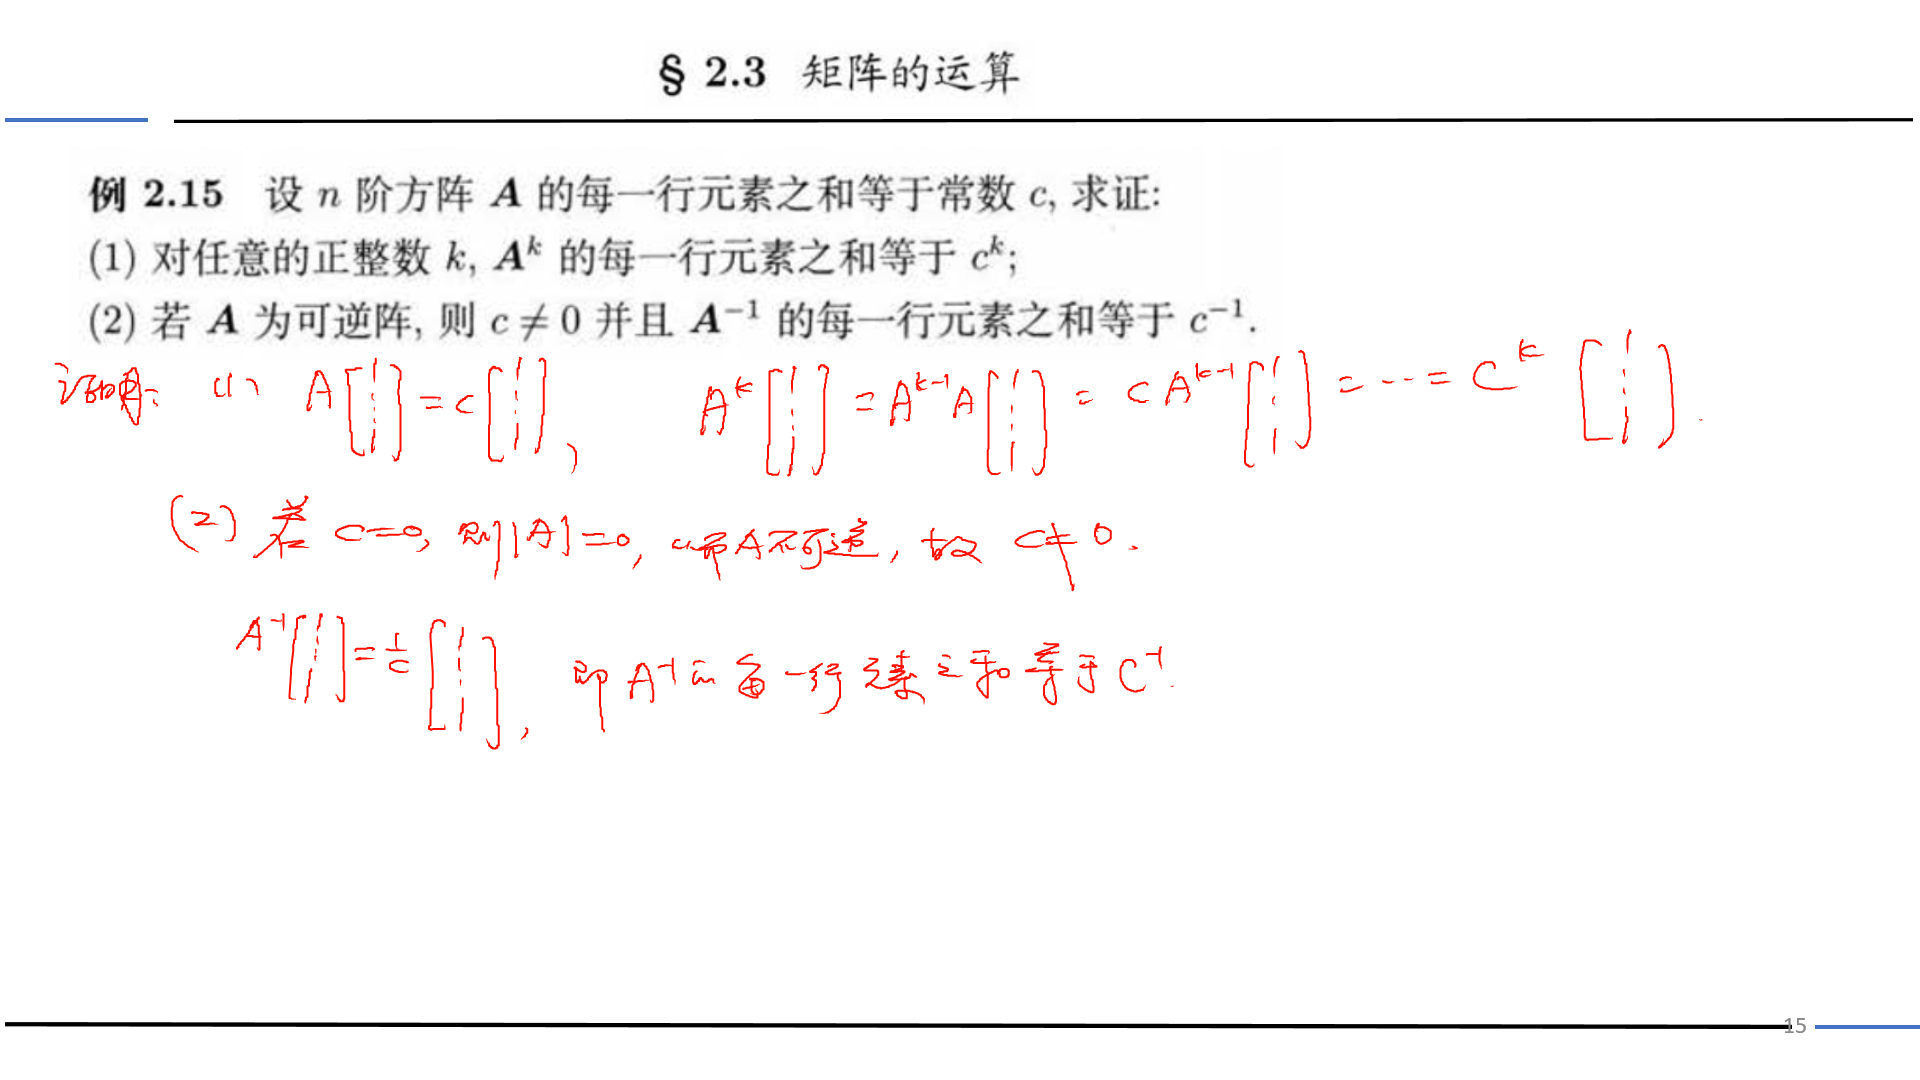 § 2.3 矩阵的运算
例 2.15 设 n 阶方阵 A 的每一行元素之和等于常数 c, 求证:
(1) 对任意的正整数 k, A^k 的每一行元素之和等于 c^k;
(2) 若 A 为可逆阵, 则 c ≠ 0 并且 A^{-1} 的每一行元素之和等于 c^{-1}.
证明: (1) A[1 ⋮ 1] = c[1 ⋮ 1], A^k[1 ⋮ 1] = A^{k-1}A[1 ⋮ 1] = cA^{k-1}[1 ⋮ 1] = ⋯ = c^k[1 ⋮ 1].
(2) 若 c=0, 则|A|=0, 从而A不可逆, 故 c≠0.
A^{-1}[1 ⋮ 1] = 1/c [1 ⋮ 1], 即 A^{-1}的每一行元素之和等于 c^{-1}.
15